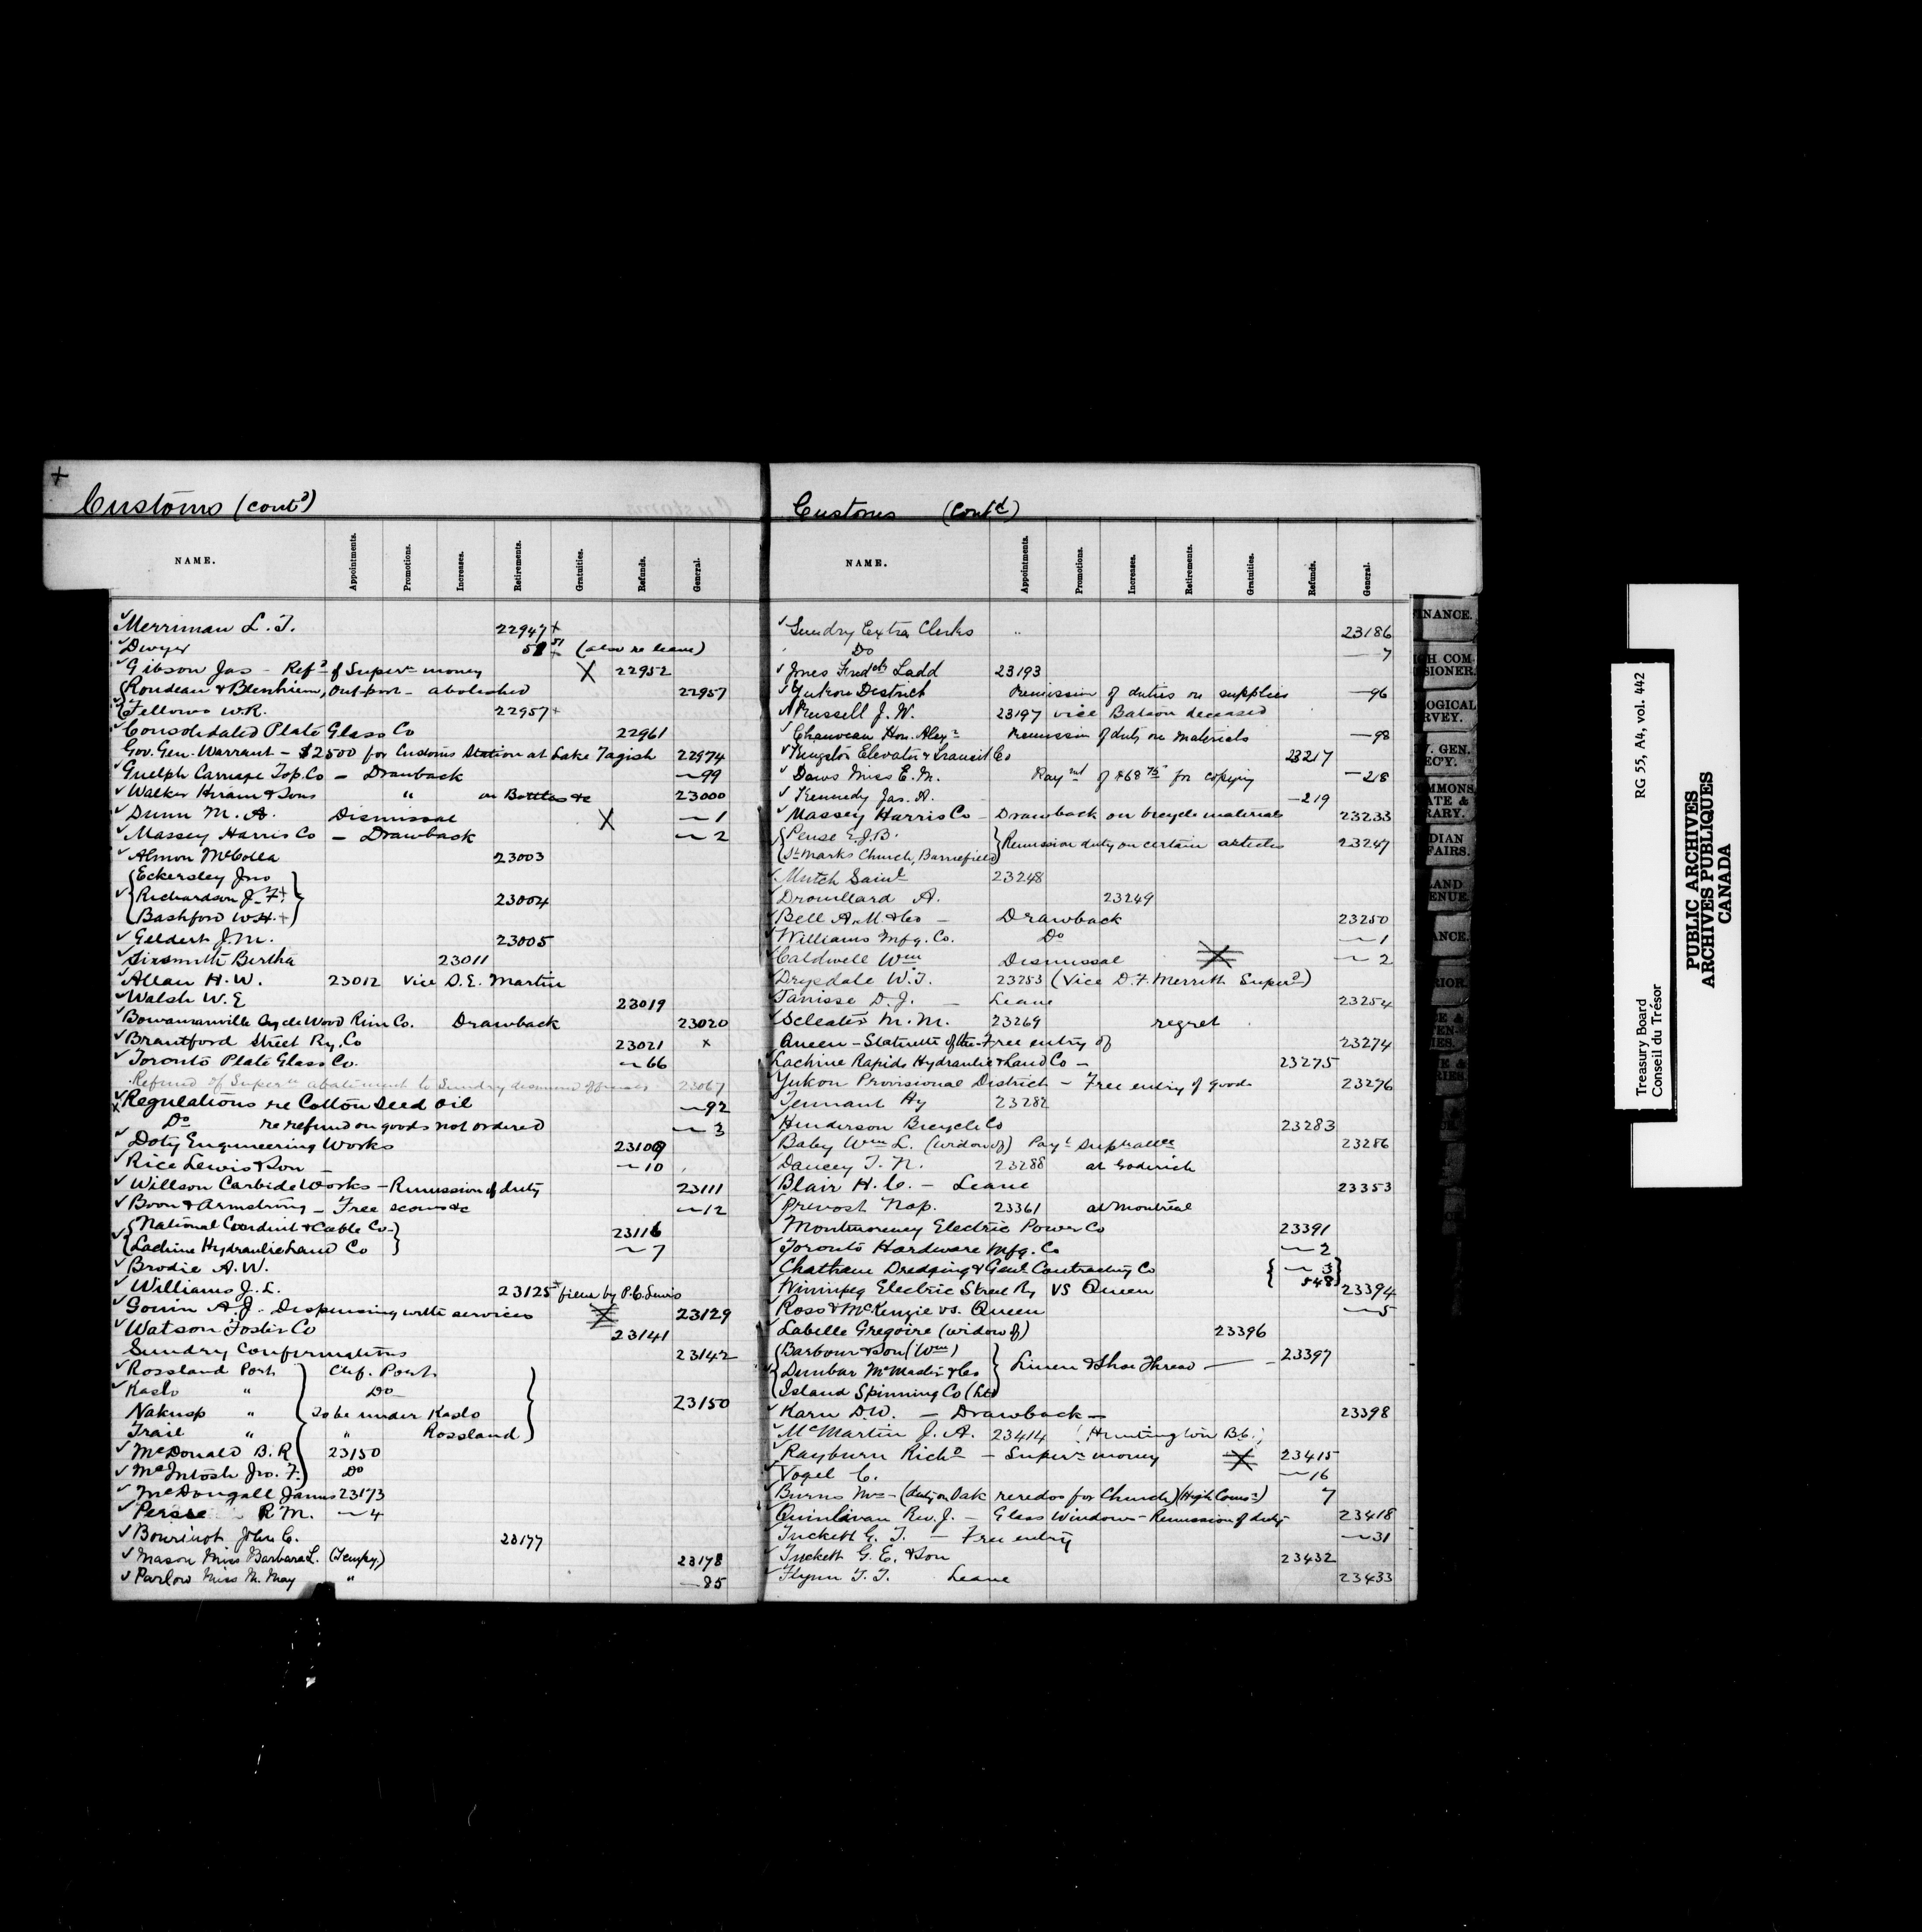 Customs (cont'd)
NAME. Appointments. Promotions. Increases. Retirements. Gratuities. Refunds. General.
Merriman L. T. 22947 +
Dwyer 51 (also re leave)
Gibson Jas - Refd of Super. money X 22952
Rondeau & Blenheim, Out-port - abolished 22957
Fellows W.R. 22957 +
Consolidated Plate Glass Co 22961
Gov. Gen. Warrant - $2500 for Customs Station at Lake Tagish 22974
Guelph Carriage Top Co - Drawback — 99
Walker Hiram & Sons " on Bottles &c 23000
Dunn M. A. Dismissal X — 1
Massey Harris Co - Drawback — 2
Almon McColla 23003
Eckersley Jno
Richardson J. F. + 23004
Bashford W.H. +
Geldert J.M. 23005
Sixsmith Bertha 23011
Allan H. W. 23012 Vice D.E. Martin
Walsh W. E 23019
Bowmanville Cycle Wood Rim Co. Drawback 23020
Brantford Street Ry. Co 23021 x
Toronto Plate Glass Co. — 66
Refund of Super. abatement to Sundry 23067
Regulations re Cotton Seed Oil — 92
Do re refund on goods not ordered — 3
Doty Engineering Works 23109
Rice Lewis & Son — 10
Willson Carbide Works - Remission of duty 23111
Boon & Armstrong - Free scows &c — 12
National Conduit & Cable Co. 23116
Lachine Hydraulic Land Co — 7
Brodie A. W.
Williams J. L. 23125
Gouin A. J. Dispensing with services X 23129
Watson Foster Co 23141
Sundry Confirmations 23142
Rossland Port Chf. Port
Kaslo " Do
Nakusp " to be under Kaslo 23150
Trail " " Rossland
McDonald B. R 23150
McIntosh Jno. F. Do
McDougall James 23173
Persse R M. — 4
Bourinot John C. 23177
Mason Miss Barbara L. (Tempy) 23178
Parlow Miss M. May " — 85
Customs (Cont'd)
NAME. Appointments. Promotions. Increases. Retirements. Gratuities. Refunds. General.
Sundry Extra Clerks 23186
Do — 7
Jones Fredk Ladd 23193
Yukon District Remission of duties on supplies — 96
Russell J. W. 23197 vice Batson deceased
Chauveau Hon. Alexr Remission of duty on materials — 98
Kingston Elevator & Transit Co 23217
Daws Miss E. M. Paymt of $68 75 for copying — 218
Kennedy Jas. A. — 219
Massey Harris Co - Drawback on bicycle materials 23233
Pense E.J.B.
St Marks Church, Barriefield Remission duty on certain articles 23247
Mutch Saml 23248
Drouillard A. 23249
Bell A. M. & Co - Drawback 23250
Williams Mfg. Co. Do — 1
Caldwell Wm Dismissal X — 2
Drysdale W. T. 23253 (Vice D. F. Merritt Superd)
Janisse D. J. - Leave 23254
Scleater M. M. 23269 regret
Queen - Statuette of the - Free entry of 23274
Lachine Rapids Hydraulic & Land Co - 23275
Yukon Provisional District - Free entry of goods 23276
Tennant Hy 23282
Henderson Bicycle Co 23283
Baby Wm L. (widow of) Payt 23286
Dancey T. N. 23288 at Goderich
Blair H. C. - Leave 23353
Prevost Nap. 23361 at Montreal
Montmorency Electric Power Co 23391
Toronto Hardware Mfg. Co — 2
Chatham Dredging & Genl Contracting Co — 3
Winnipeg Electric Street Ry VS Queen 548 23394
Ross & McKenzie vs. Queen — 5
Labelle Gregoire (widow of) 23396
Barbour & Son (Wm)
Dunbar McMaster & Co Linen & Shoe Thread — 23397
Island Spinning Co (Ltd)
Karn D.W. - Drawback - 23398
McMartin J. A. 23414 (Huntingdon B.C.)
Rayburn Richd - Super. money X 23415
Vogel C. — 16
Burns Mr - (duty on Oak reredos for Church) (High Comr) 7
Quinlivan Rev. J. - Glass Windows - Remission of duty 23418
Tuckett G. T. - Free entry — 31
Tuckett G. E. & Son 23432
Flynn T. T. Leave 23433
FINANCE.
HIGH COM
SSIONER.
LOGICAL
RVEY.
V. GEN.
EC'Y.
OMMONS,
ATE &
RARY.
DIAN
FAIRS.
LAND
ENUE.
ANCE.
RIOR.
RG 55, A4, vol. 442
Treasury Board
Conseil du Trésor
PUBLIC ARCHIVES
ARCHIVES PUBLIQUES
CANADA